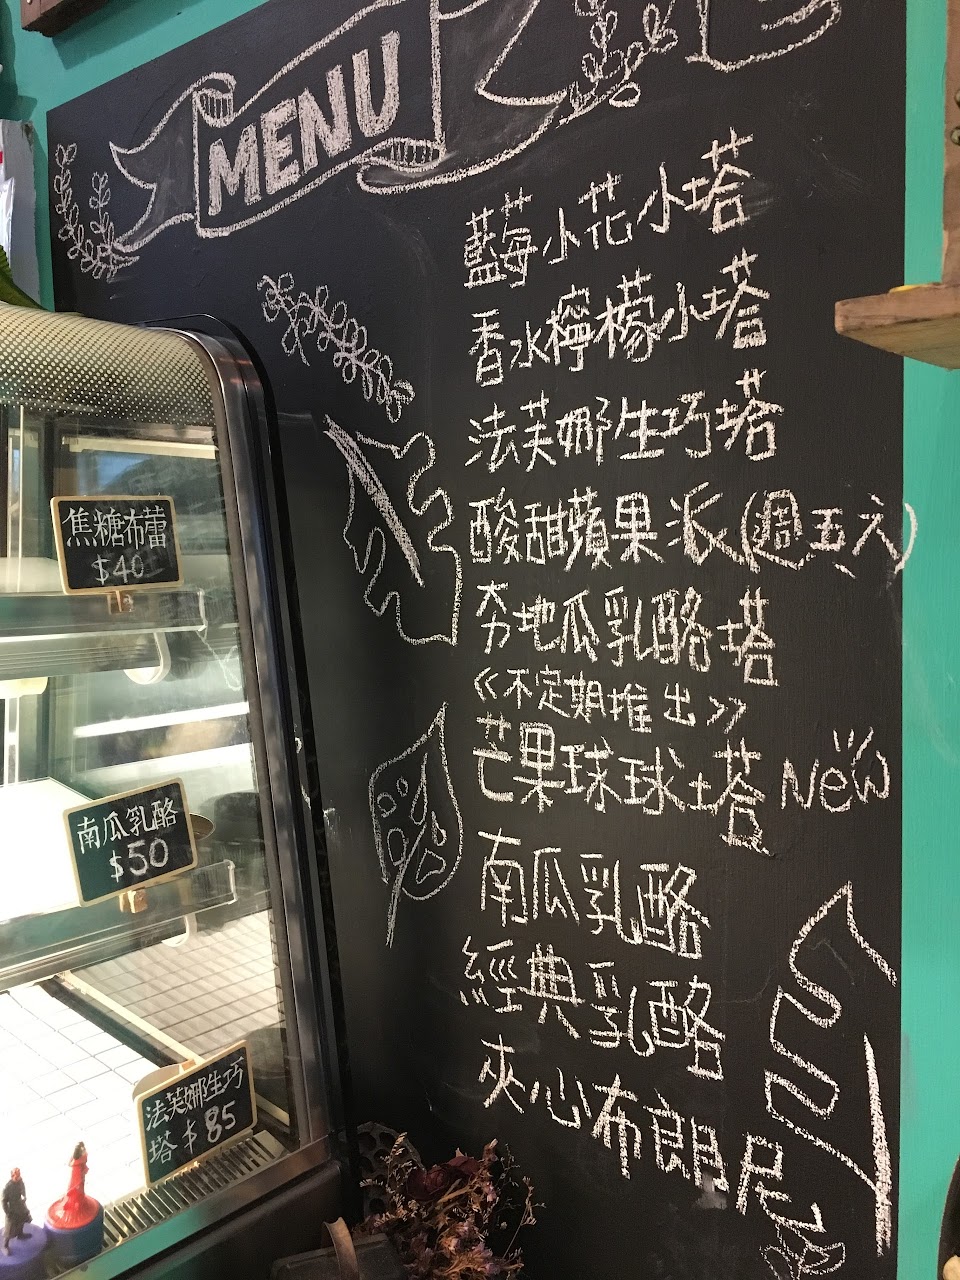 MENU
藍莓小花小塔
香水檸檬小塔
法芙娜生巧塔
酸甜蘋果派(週五、六)
夯地瓜乳酪塔
《不定期推出》
芒果球球塔 New
南瓜乳酪
經典乳酪
夾心布朗尼
焦糖布蕾
$40
南瓜乳酪
$50
法芙娜生巧
塔 $85